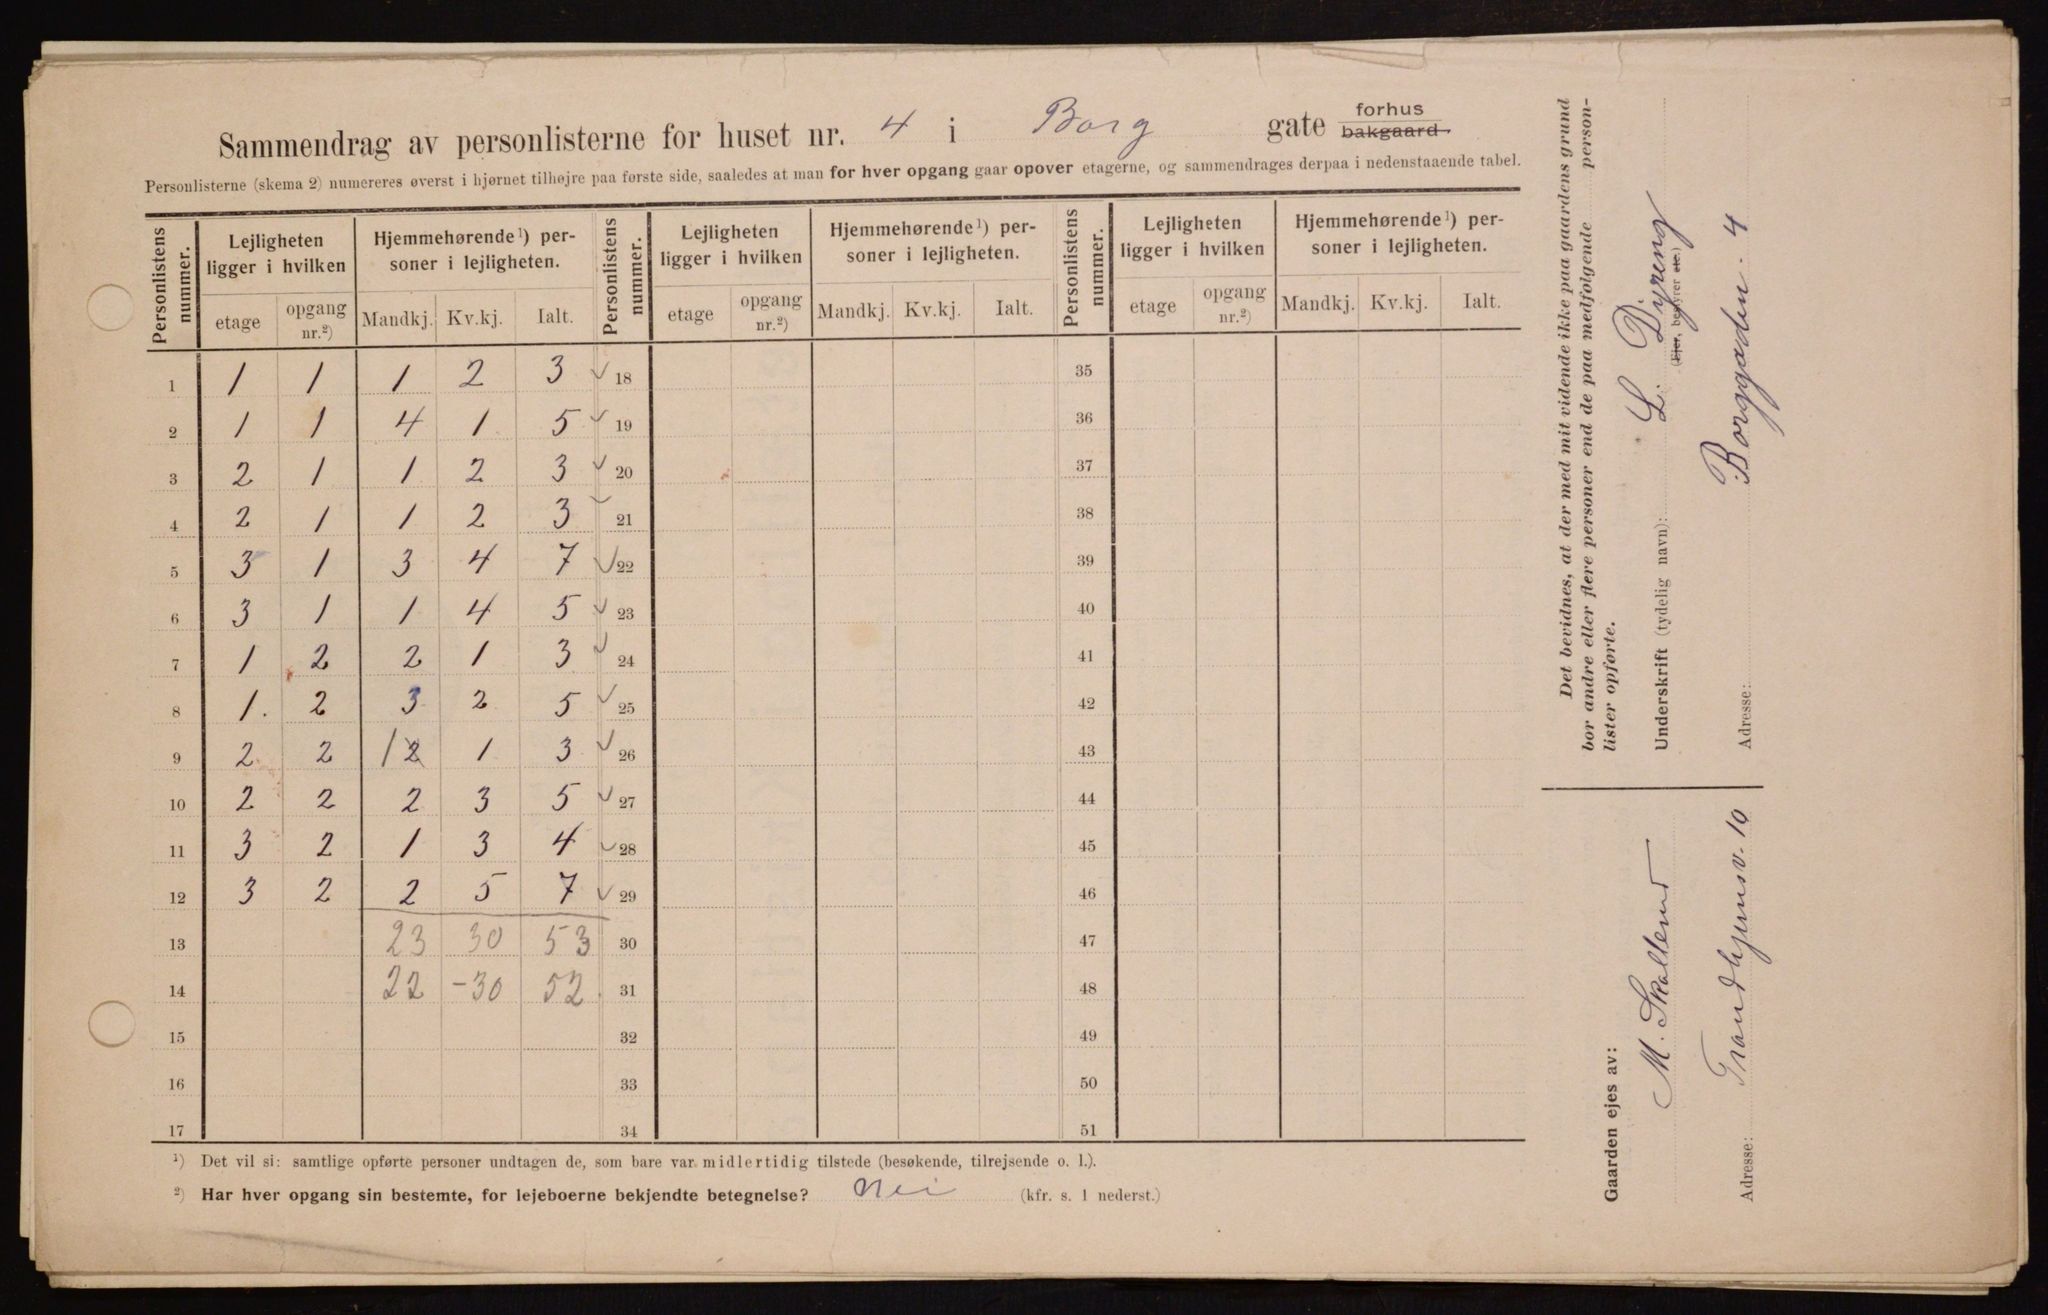 Sammendrag av personlisterne for huset nr. 4 i Borg gate forhus bakgaard.
Personlisterne (skema 2) numereres øverst i hjørnet tilhøjre paa første side, saaledes at man for hver opgang gaar opover etagerne, og sammendrages derpaa i nedenstaaende tabel.
Personlistens nummer. Lejligheten ligger i hvilken Hjemmehørende ¹) personer i lejligheten. Personlistens nummer. Lejligheten ligger i hvilken Hjemmehørende ¹) personer i lejligheten. Personlistens nummer. Lejligheten ligger i hvilken Hjemmehørende ¹) personer i lejligheten.
etage opgang nr.²) Mandkj. Kv.kj. Ialt. etage opgang nr.²) Mandkj. Kv.kj. Ialt. etage opgang nr.²) Mandkj. Kv.kj. Ialt.
1 1 1 1 2 3 ✓ 18 35
2 1 1 4 1 5 ✓ 19 36
3 2 1 1 2 3 ✓ 20 37
4 2 1 1 2 3 ✓ 21 38
5 3 1 3 4 7 ✓ 22 39
6 3 1 1 4 5 ✓ 23 40
7 1 2 2 1 3 ✓ 24 41
8 1. 2 3 2 5 ✓ 25 42
9 2 2 1 2 1 3 ✓ 26 43
10 2 2 2 3 5 ✓ 27 44
11 3 2 1 3 4 ✓ 28 45
12 3 2 2 5 7 ✓ 29 46
13 23 30 53 30 47
14 22 - 30 52 31 48
15 32 49
16 33 50
17 34 51
¹) Det vil si: samtlige opførte personer undtagen de, som bare var midlertidig tilstede (besøkende, tilrejsende o. l.).
²) Har hver opgang sin bestemte, for lejeboerne bekjendte betegnelse? Nei (kfr. s. 1 nederst.)
Det bevidnes, at der med mit vidende ikke paa gaardens grund
bor andre eller flere personer end de paa medfølgende personlister opførte.
Underskrift (tydelig navn): L. Dyreng
(Ejer, bestyrer etc.)
Adresse: Borggaden. 4
Gaarden ejes av:
M. Skallerud
Adresse: Trondhjemsv. 10